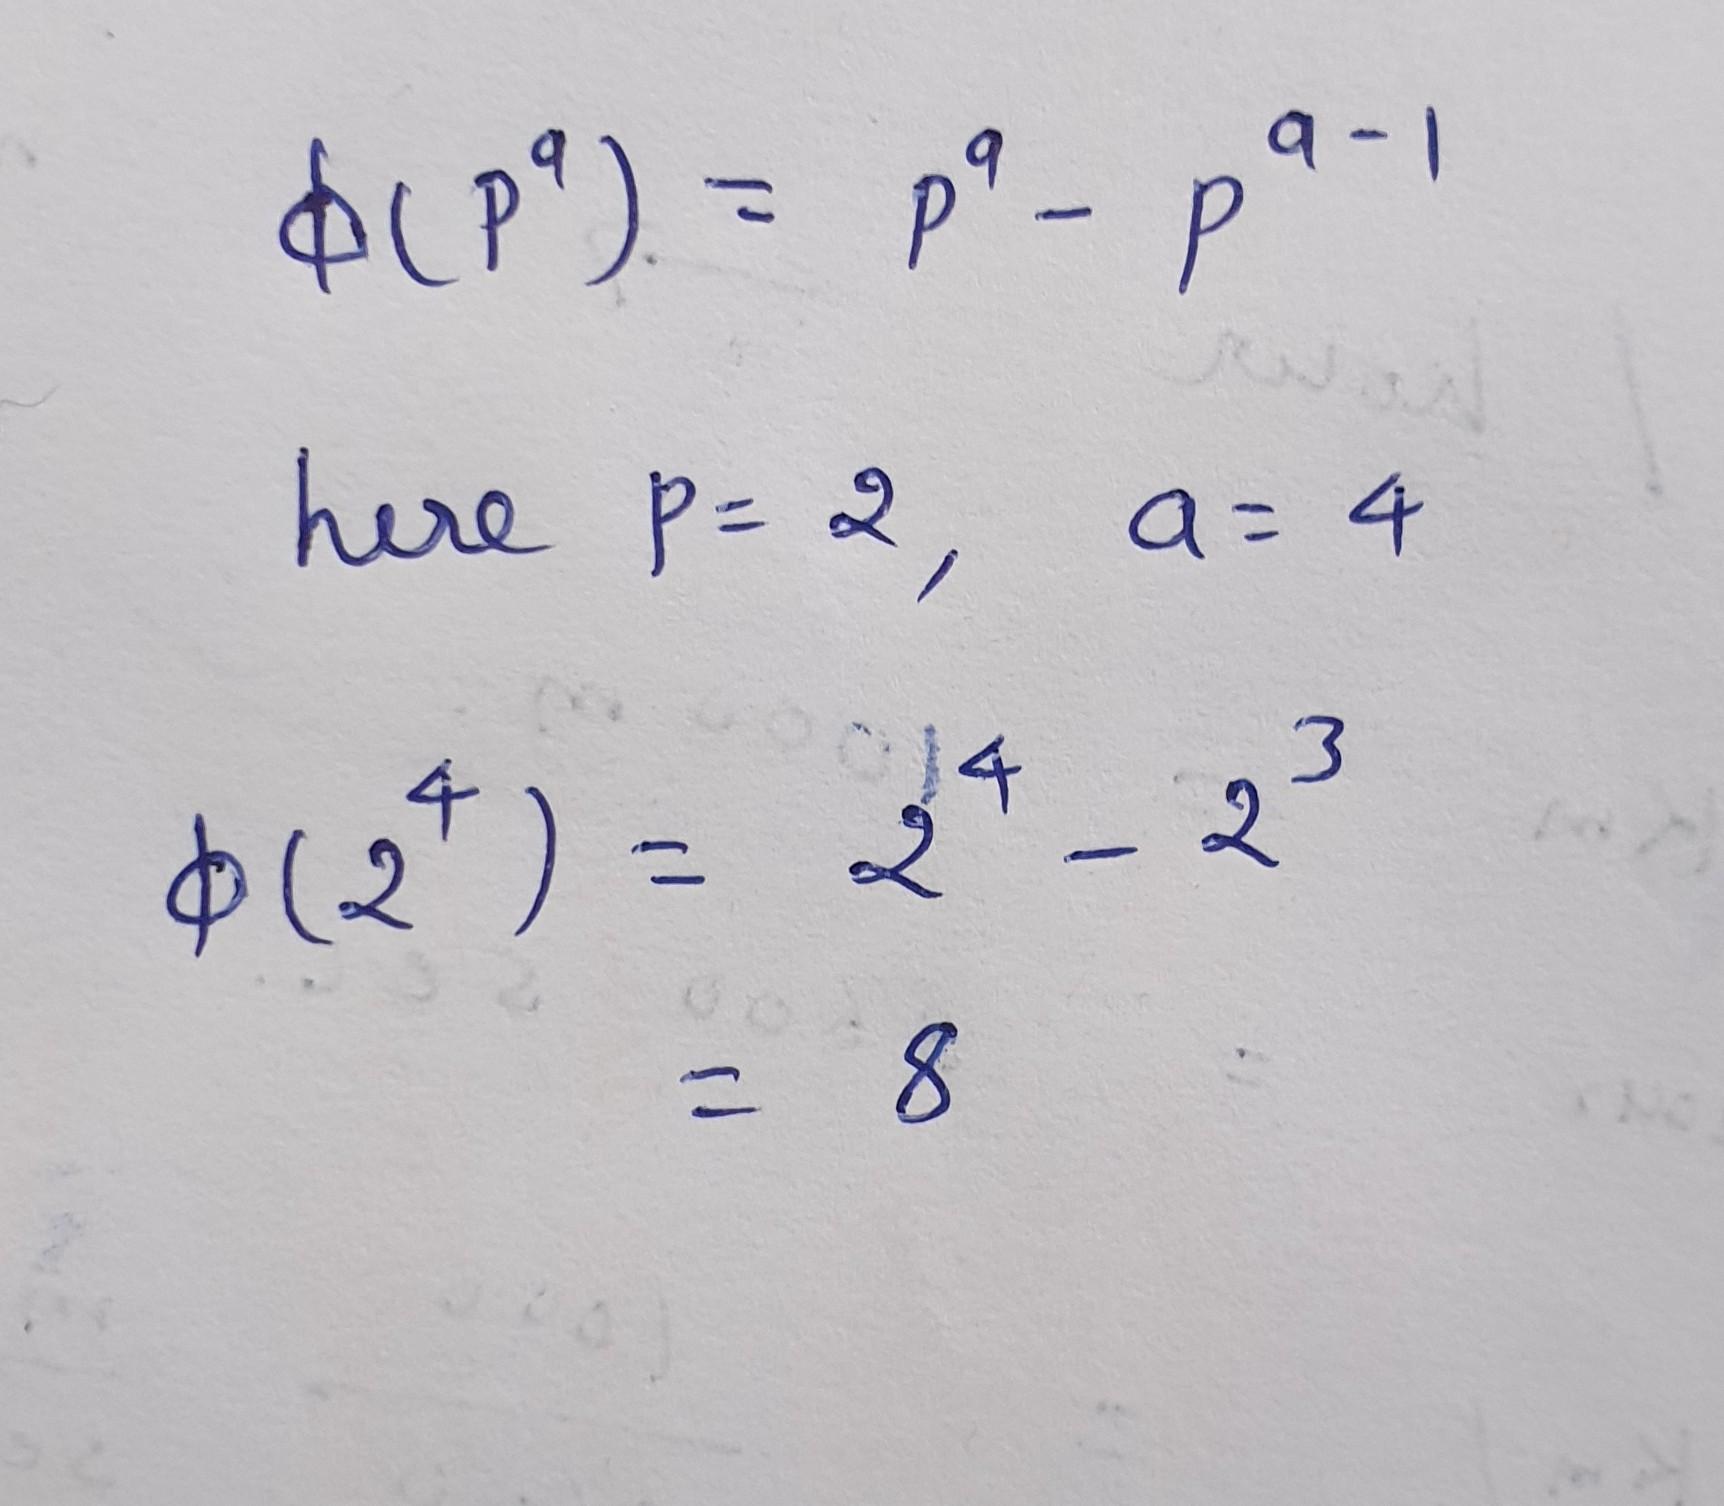 ϕ(pᵃ) = pᵃ - pᵃ⁻¹
here p = 2, a = 4
ϕ(2⁴) = 2⁴ - 2³
= 8